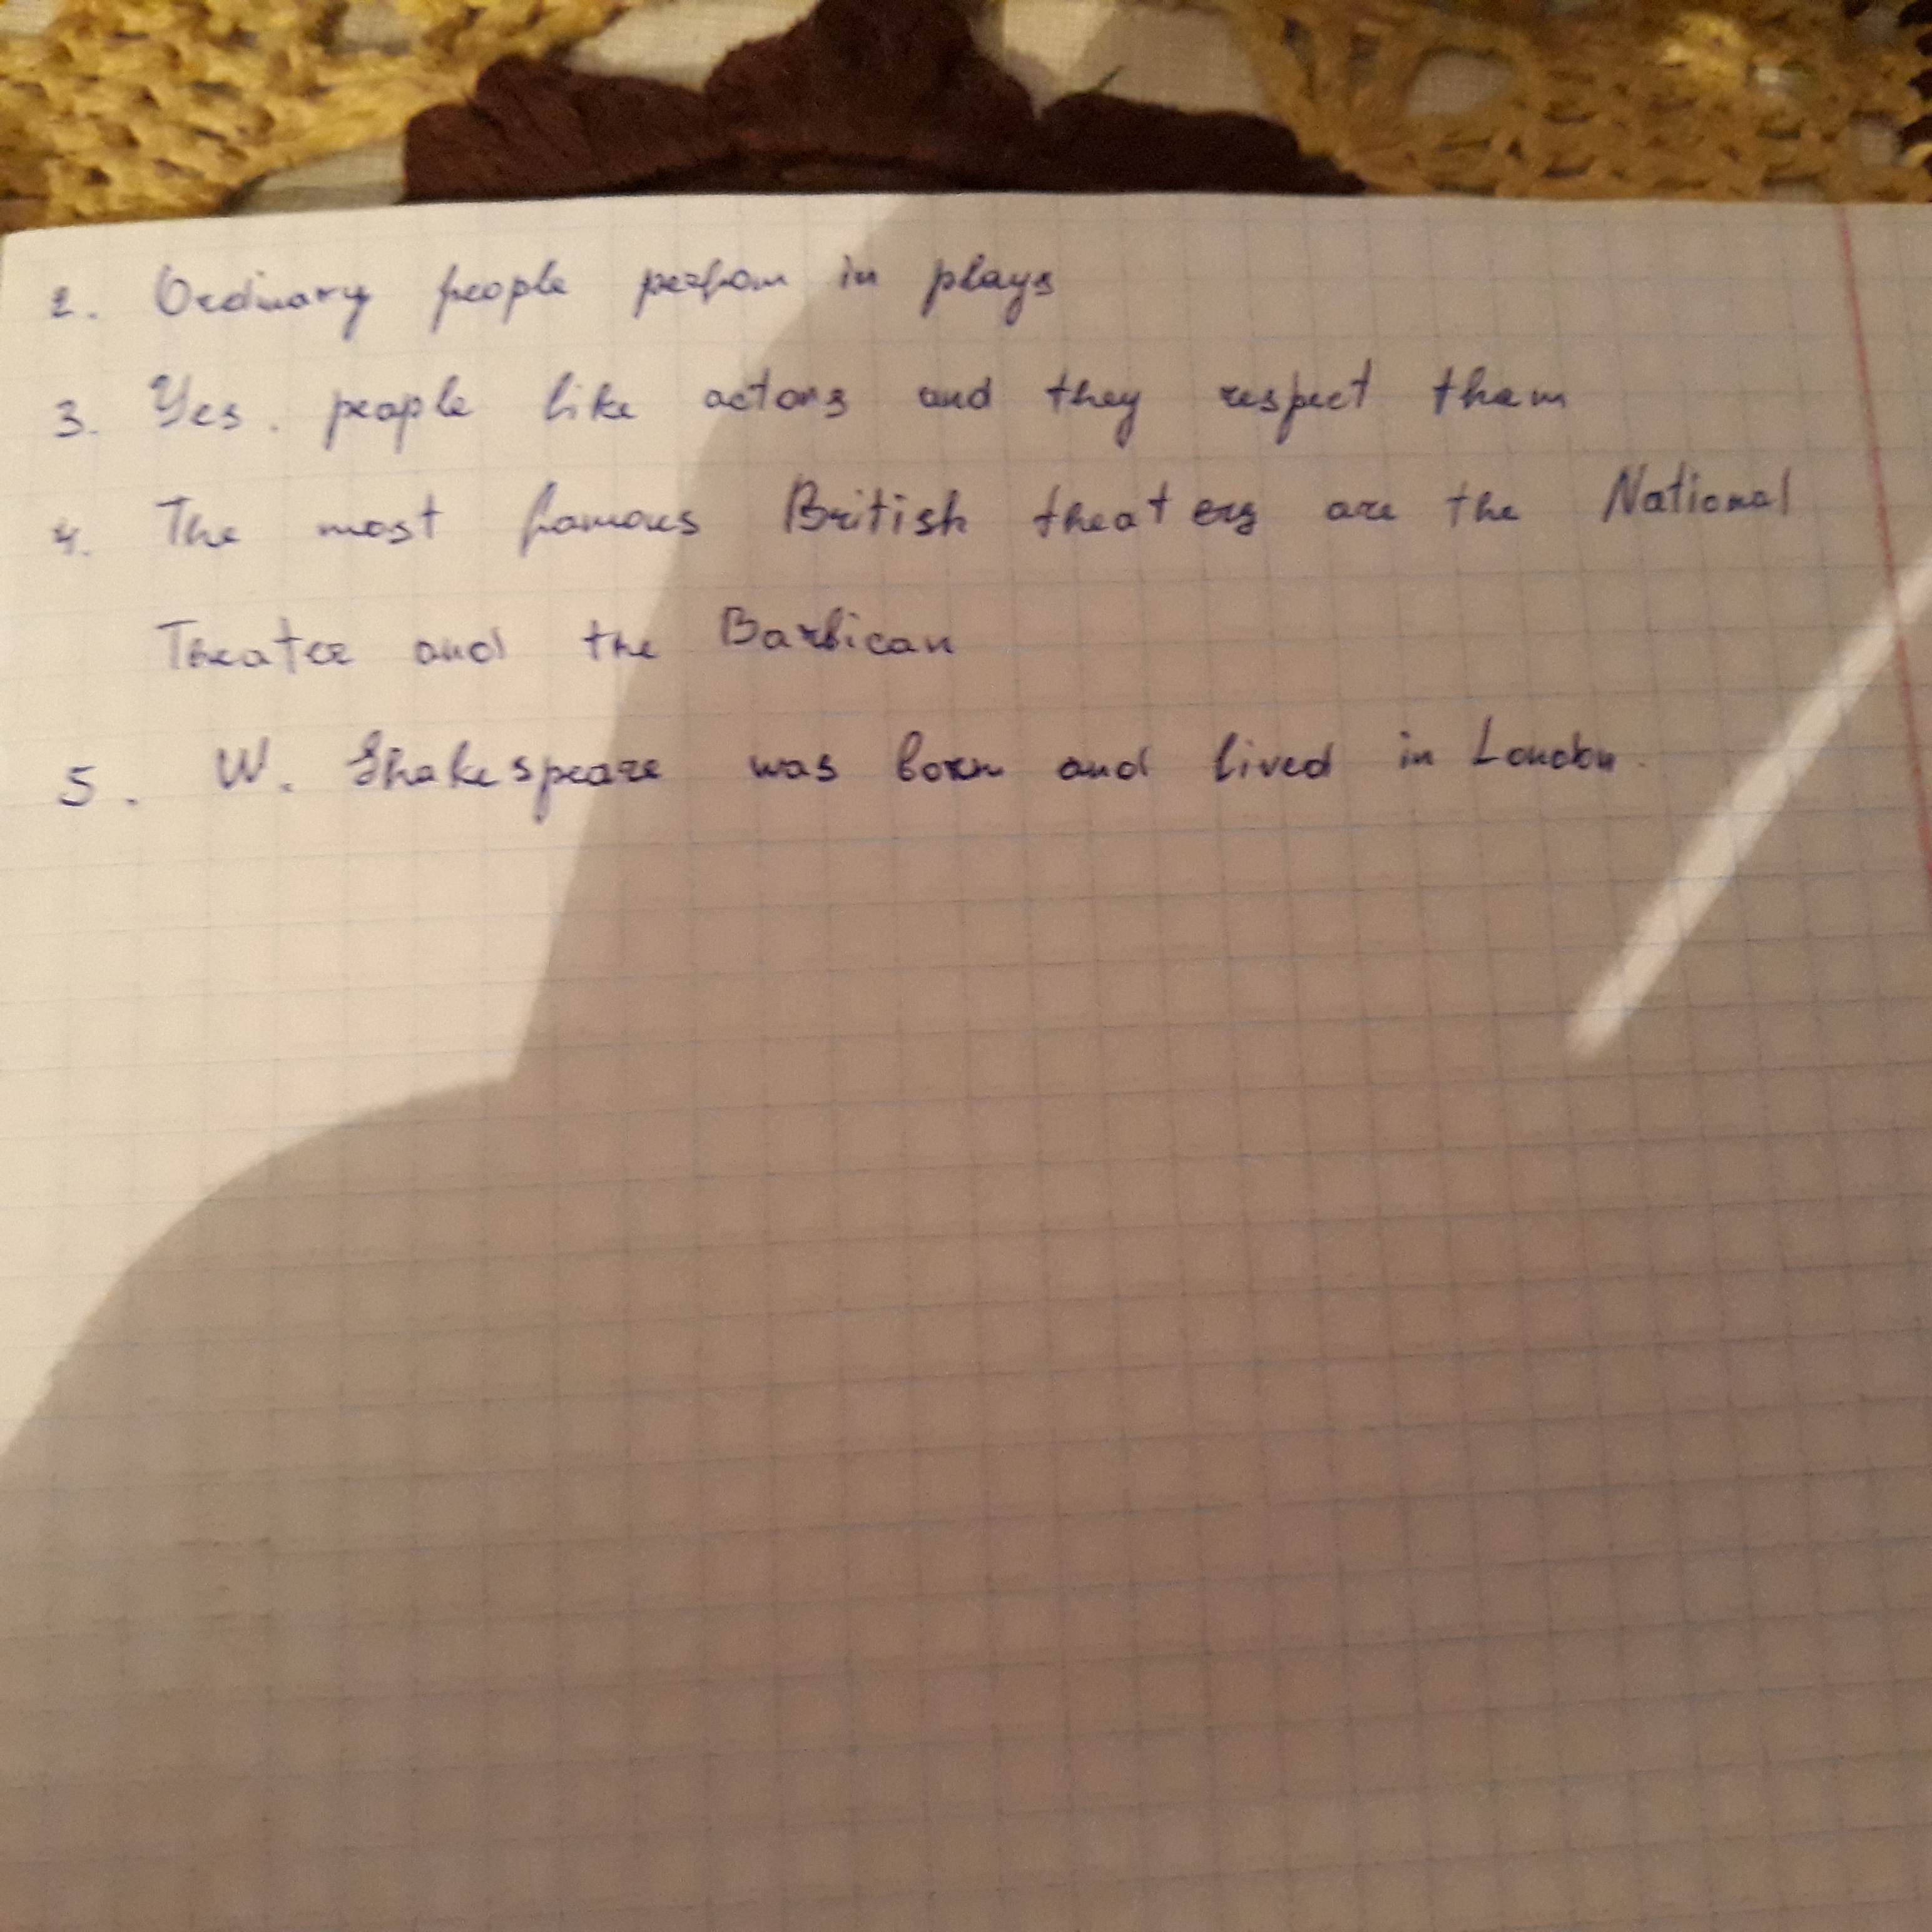 2. Ordinary people perfom in plays
3. Yes. people like actors and they respect them
4. The most famous British theaters are the National
Theater and the Barbican
5. W. Shakespeare was born and lived in London.